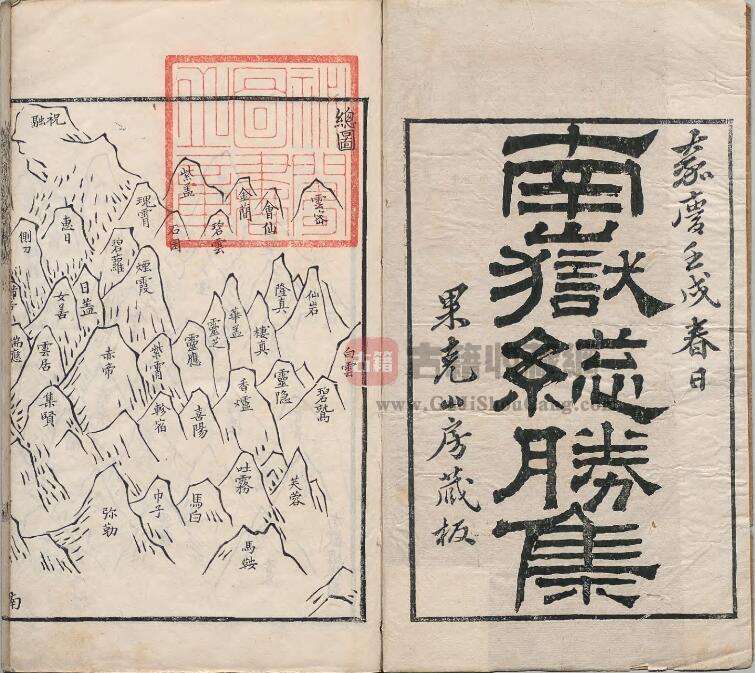 嘉慶壬戌春日
南嶽緫勝集
果克山房藏板
總圖
雲密
會仙
金簡
紫蓋
碧雲
石囷
琨霄
祝融
惠日
側刀
碧蘿
煙霞
日蓋
女
仙岩
隆真
棲真
華蓋
靈芝
靈應
紫霄
赤帝
雲居
應
白雲
碧
靈隐
香爐
喜陽
軫宿
集賢
芙蓉
吐霧
馬白
巾子
弥勒
馬鞍
南
古籍
www.GuJiShouCang.com